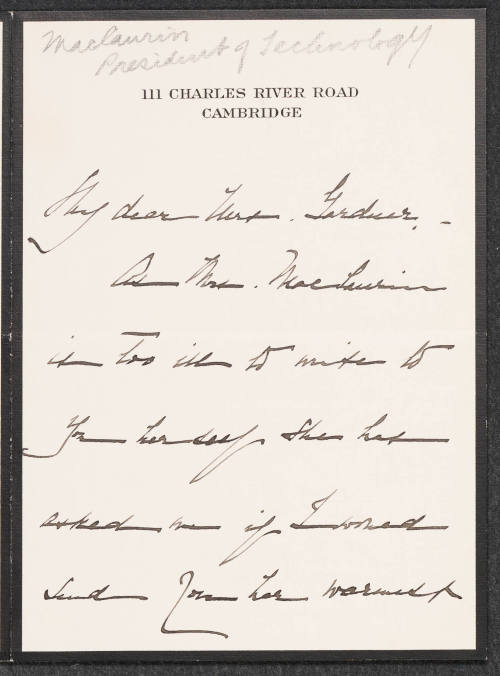 Maclaurin
President of Technology
111 CHARLES RIVER ROAD
CAMBRIDGE
My dear Mrs. Gardner, -
As Mrs. MacLaurin
is too ill to write to
you herself she has
asked me if I would
send you her warmest